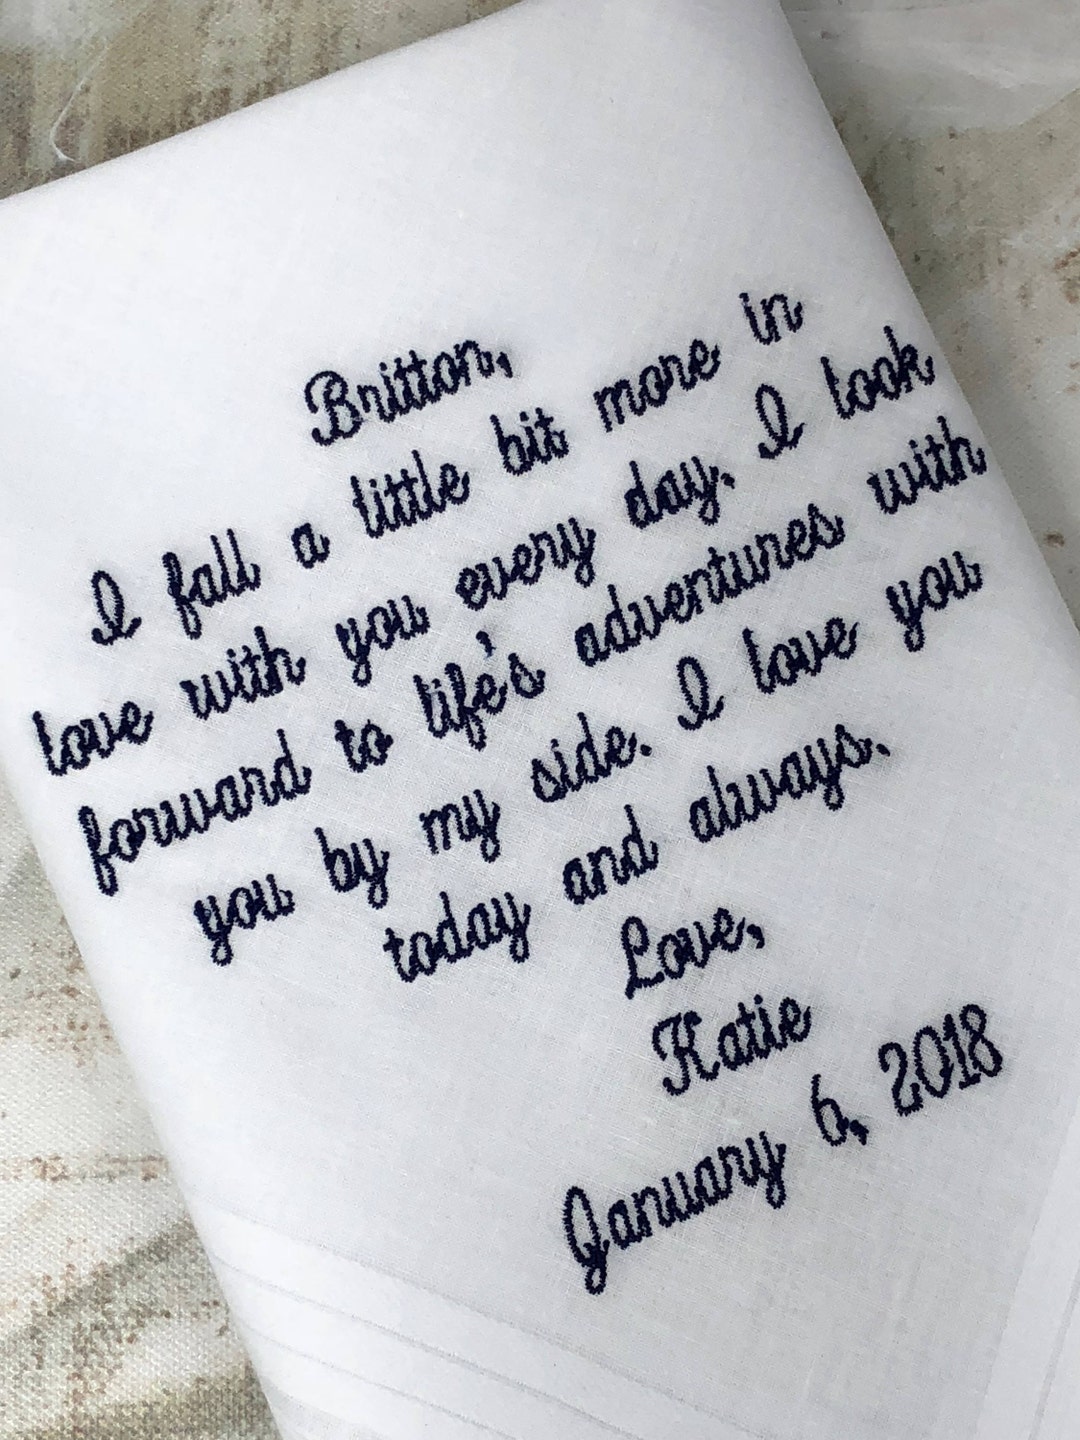 Britton,
I fall a little bit more in
love with you every day. I look
forward to life's adventures with
you by my side. I love you
today and always.
Love,
Katie
January 6, 2018